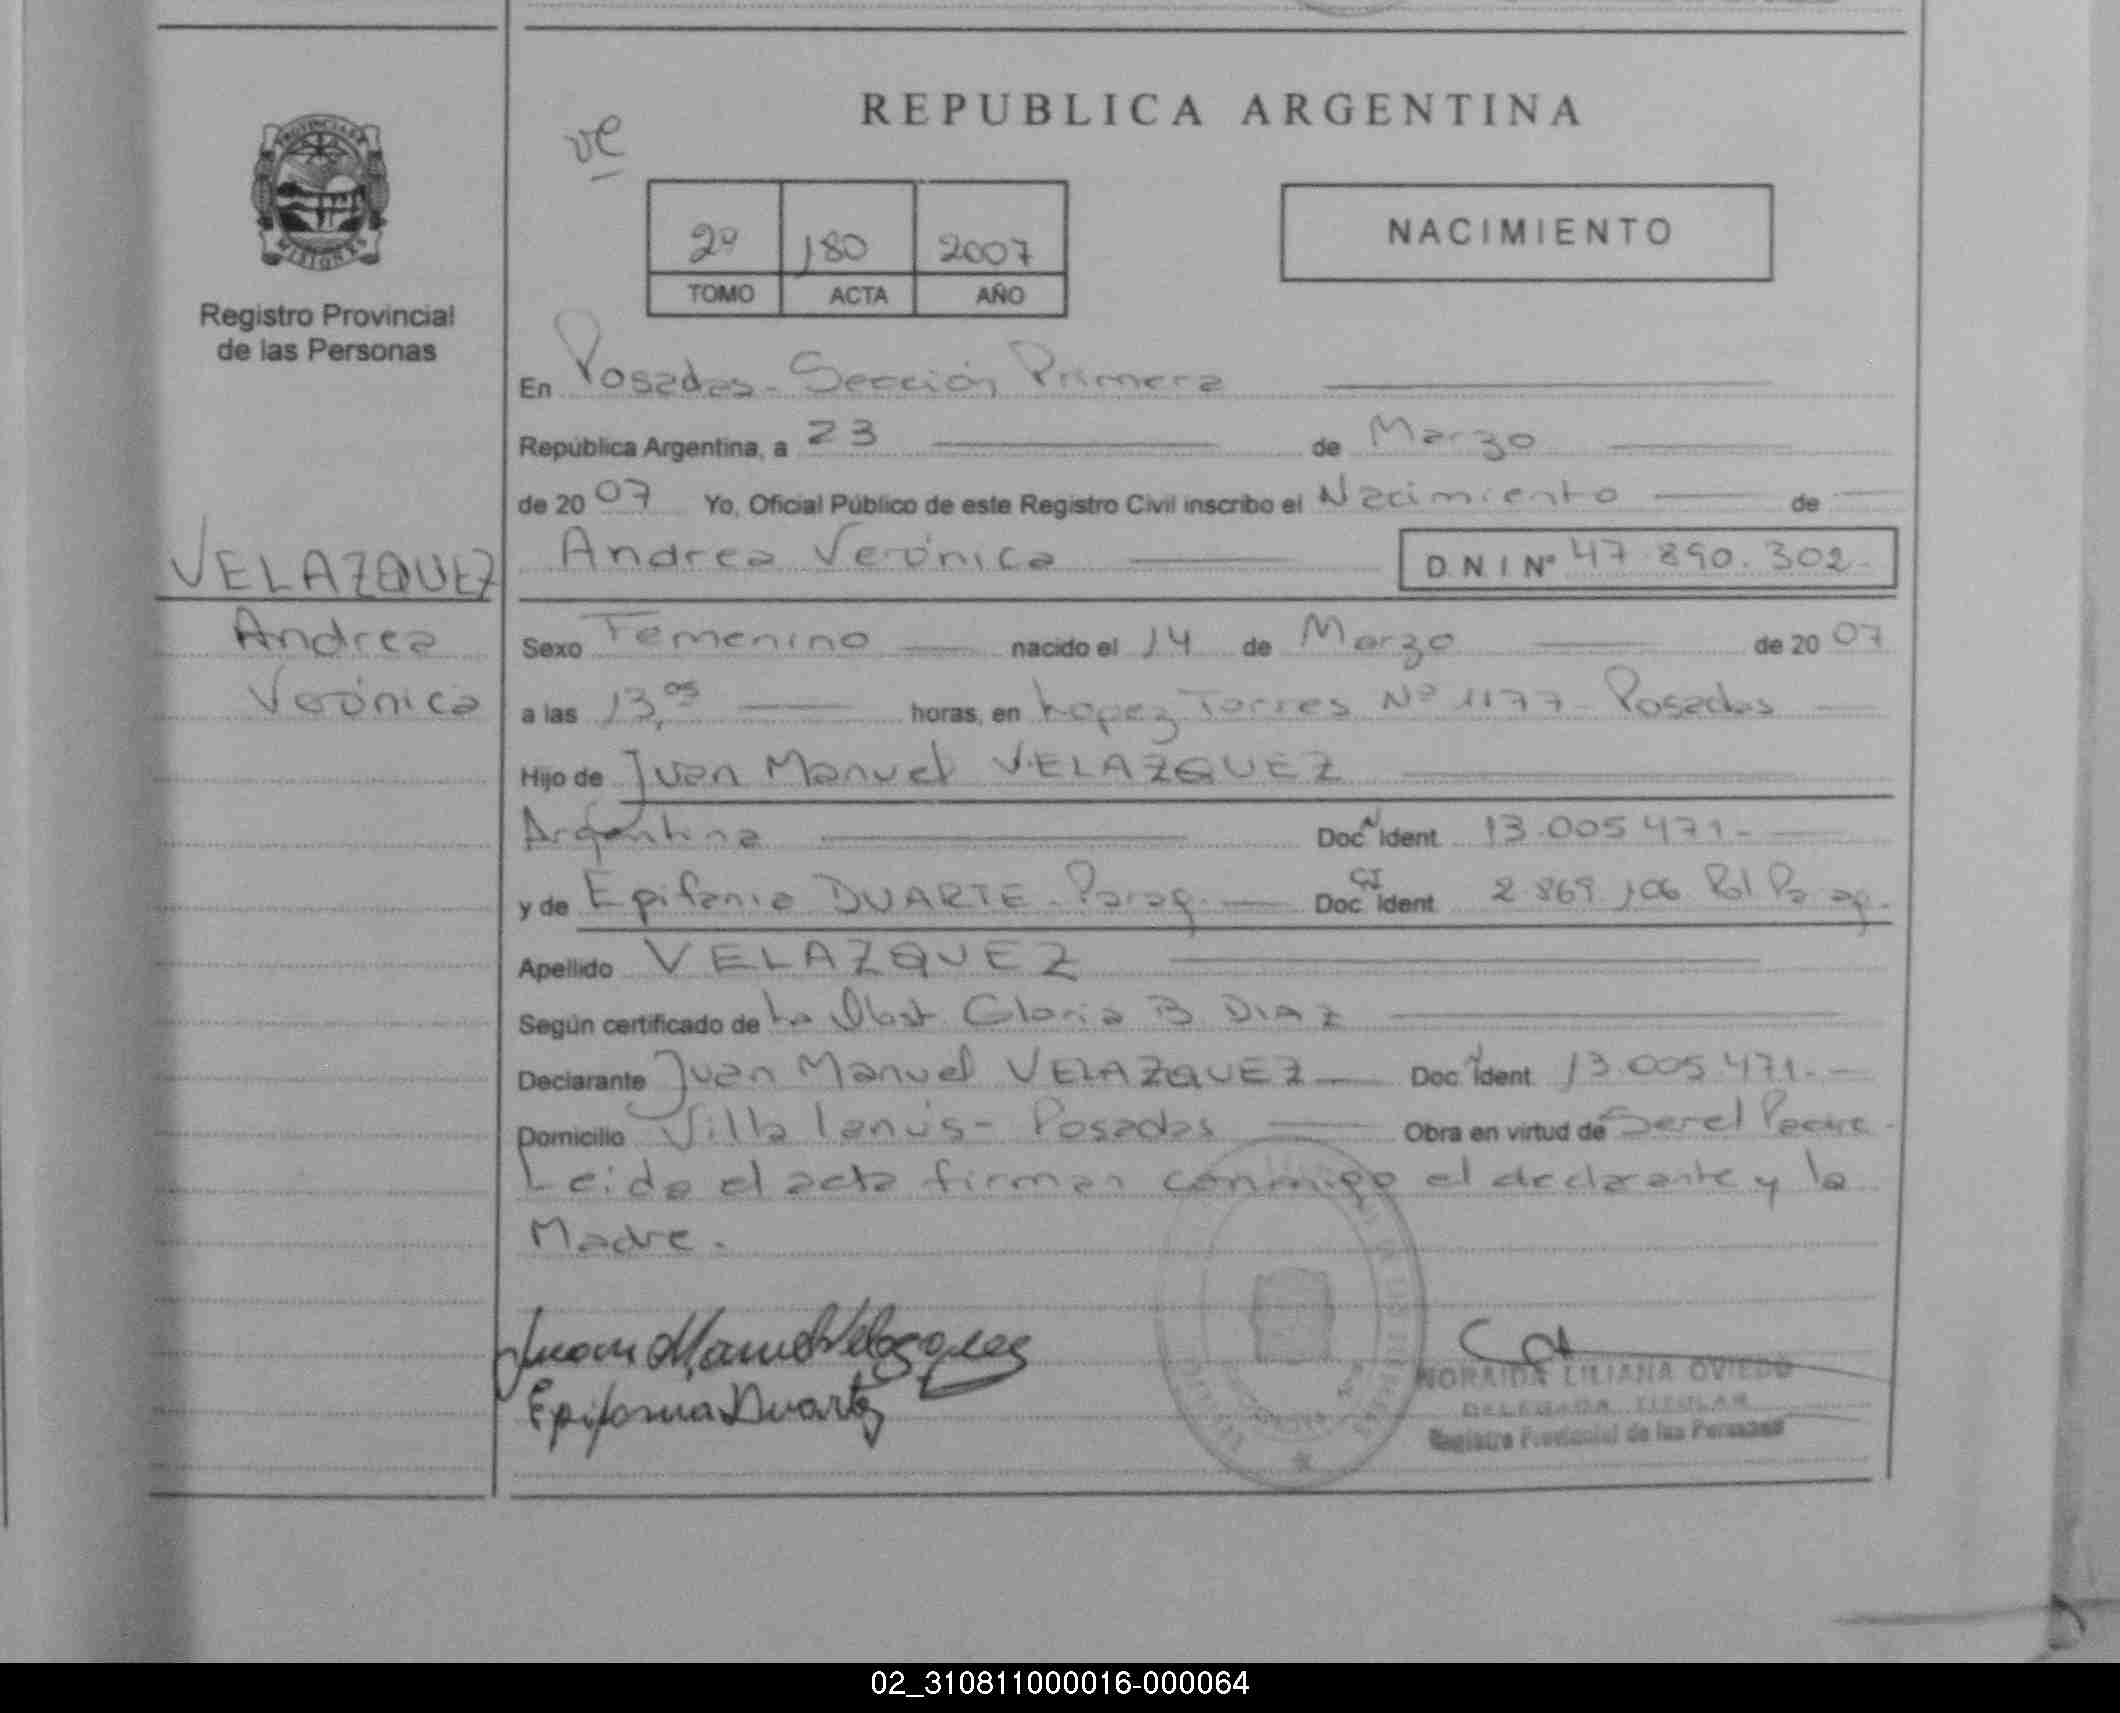 REPUBLICA ARGENTINA
ve
2º 180 2007
TOMO ACTA AÑO
NACIMIENTO
PROVINCIA DE
MISIONES
Registro Provincial
de las Personas
VELAZQUEZ
Andrea
Verónica
En Posadas - Sección Primera
República Argentina, a 23 de Marzo
de 2007 Yo, Oficial Público de este Registro Civil inscribo el Nacimiento de
Andrea Verónica D.N.I Nº 47.890.302.-
Sexo Femenino nacido el 14 de Marzo de 2007
a las 13,05 horas, en Lopez Torres Nº 1177 - Posadas
Hijo de Juan Manuel VELAZQUEZ
Argentina Doc. Ident. 13.005.471.-
y de Epifania DUARTE - Parag. Doc. CI Ident. 2.869.106 Pol Parag.
Apellido VELAZQUEZ
Según certificado de La Obst. Gloria B DIAZ
Declarante Juan Manuel VELAZQUEZ Doc. Ident. 13.005.471.-
Domicilio Villa Lanús - Posadas Obra en virtud de Ser el Padre.-
Leida el acta firman conmigo el declarante y la
Madre.
Juan Manuel Velazquez
Epifania Duarte
NORAIDA LILIANA OVIEDO
DELEGADA TITULAR
Registro Provincial de las Personas
02_310811000016-000064